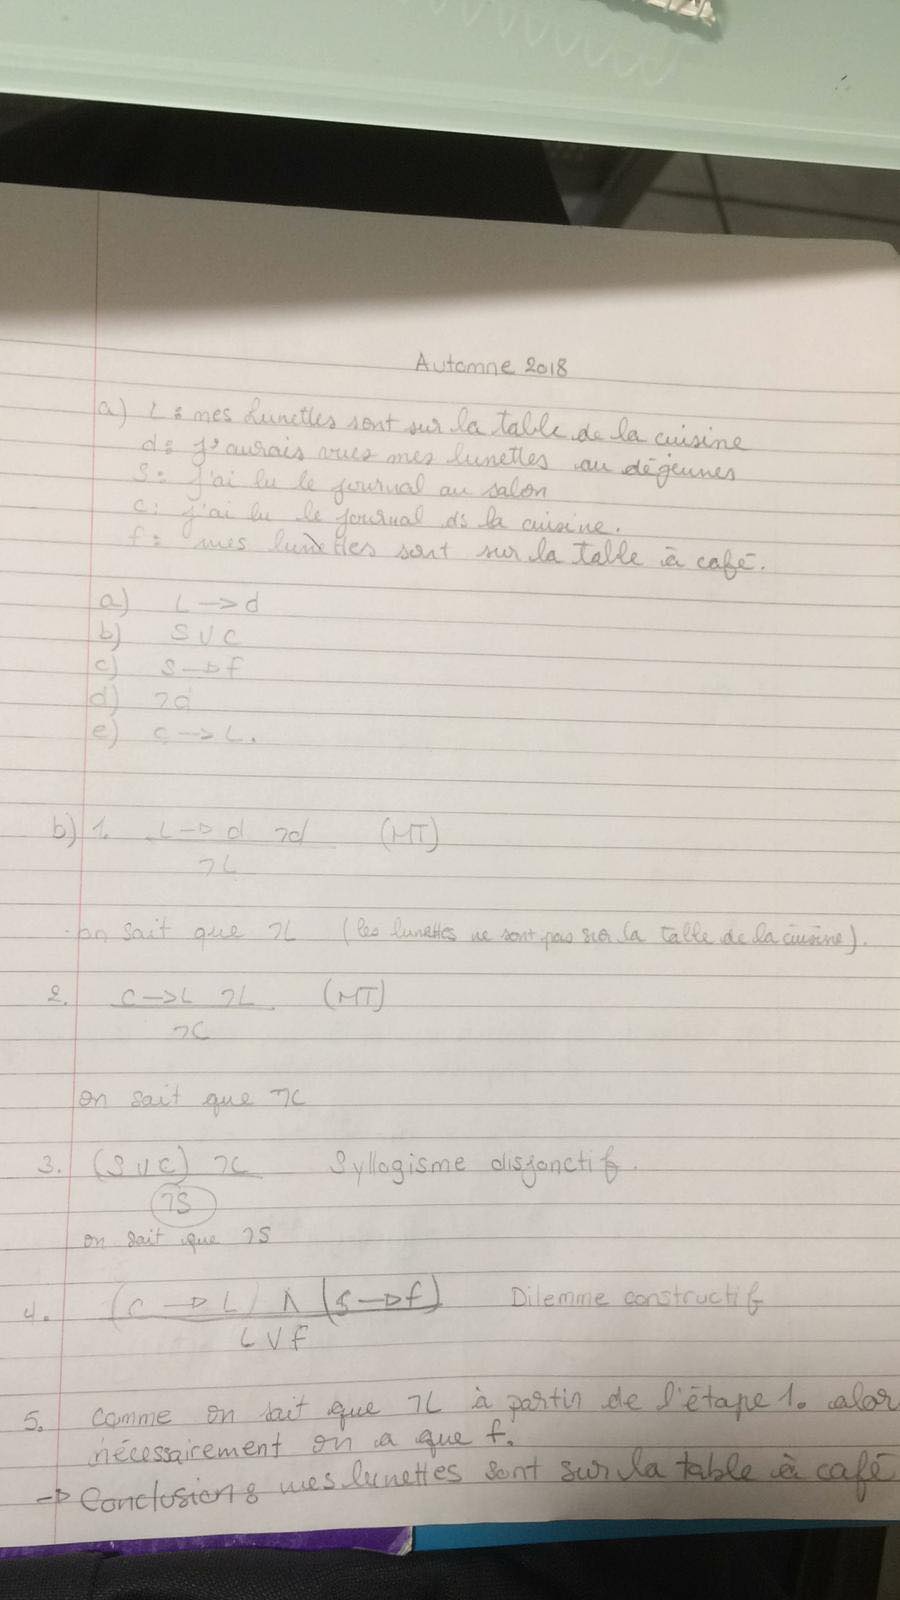 Automne 2018
a) L : mes lunettes sont sur la table de la cuisine
d : j'aurais vues mes lunettes au déjeunes
s : j'ai lu le journal au salon
c : j'ai lu le journal ds la cuisine.
f : mes lunettes sont sur la table à café.
a) L → d
b) S ∨ C
c) S → f
d) ¬d
e) C → L.
b) 1. L → d ¬d (MT)
¬L
on sait que ¬L (les lunettes ne sont pas sur la table de la cuisine).
2. C → L ¬L (MT)
¬C
on sait que ¬C
3. (S ∨ C) ¬C Syllogisme disjonctif.
¬S
on sait que ¬S
4. (C → L) ∧ (S → f) Dilemme constructif
L ∨ f
5. Comme on sait que ¬L à partir de l'étape 1. alor
nécessairement on a que f.
→ Conclusion : mes lunettes sont sur la table à café